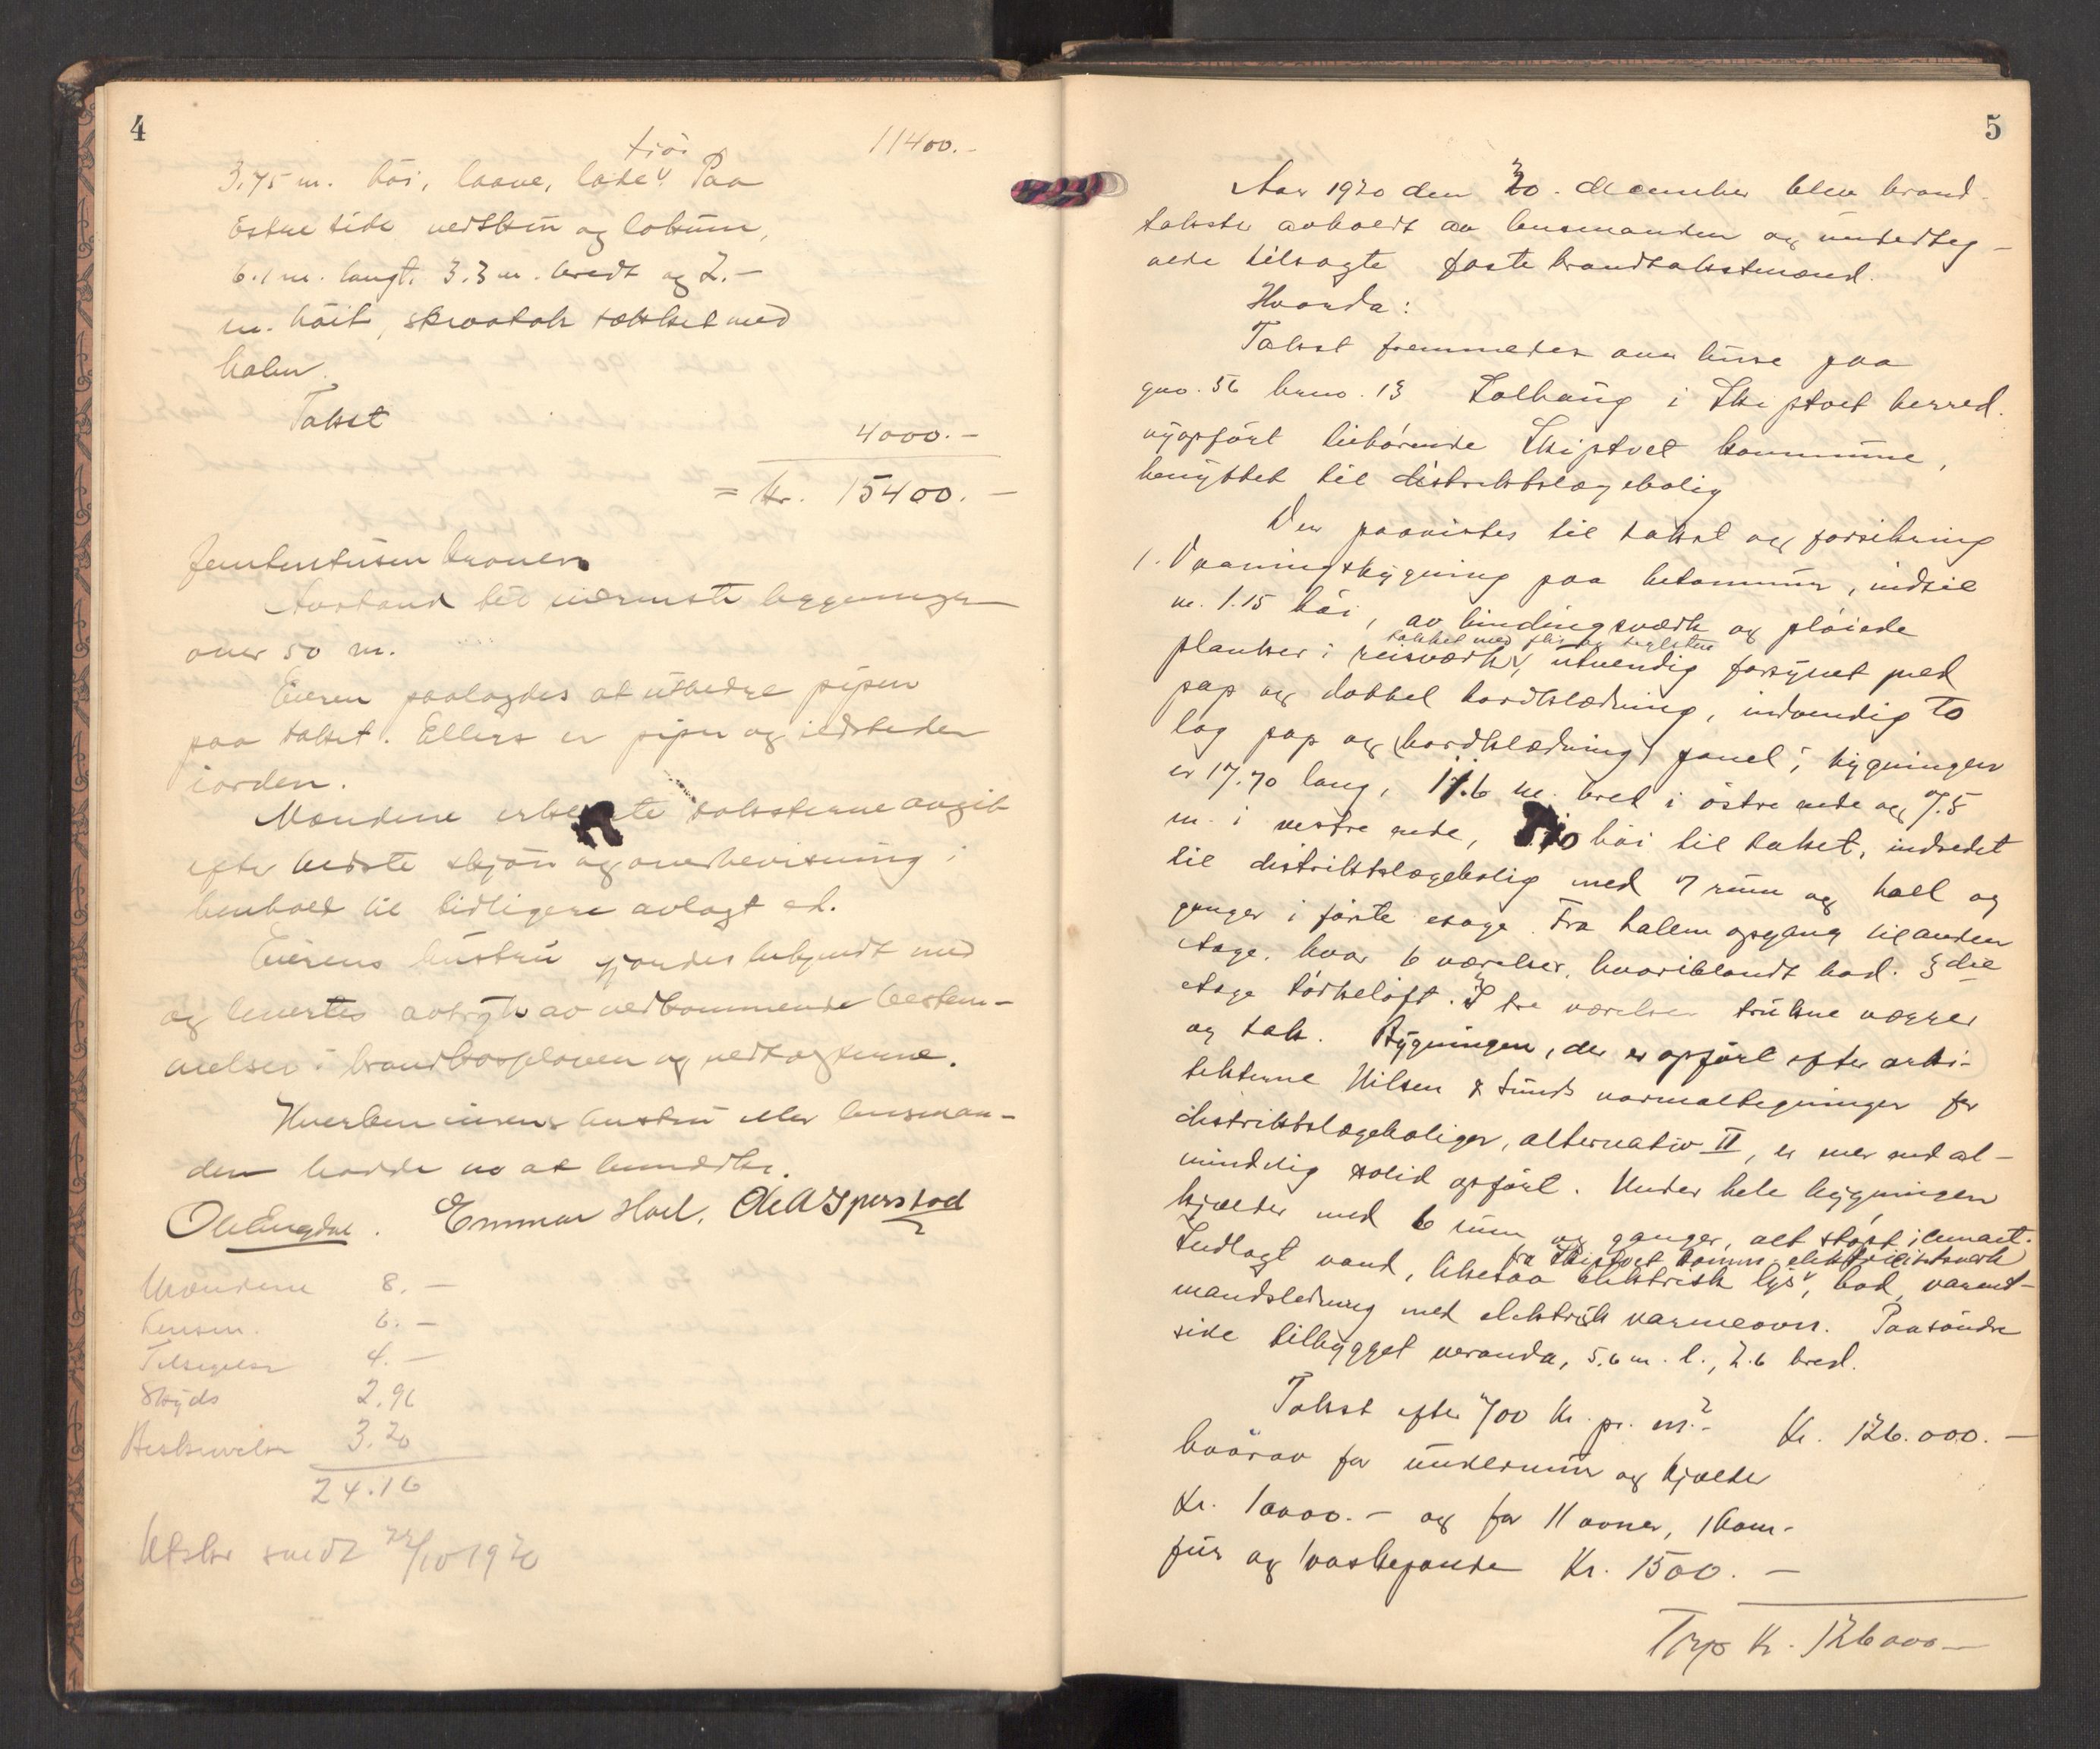 4
11400.-
fjös
3.75 m. høi, laave, lade v. Paa
østre side vedskur og lokum,
6.1 m. langt. 3.3 m. bredt og 2.-
m. høit, skraatak tækket med
halm.
Takst
4000.-
= Kr. 15400.-
femtentusen kroner
Avstand til nærmeste bygninger
over 50 m.
Eieren paalagdes at utbedre pipen
paa taket. Ellers er piper og ildsteder
iorden.
Mændene erklærte taksterne avgit
efter bedste skjøn og overbevisning i
henhold til tidligere avlagt ed.
Eierens hustru gjordes bekjendt med
og levertes avtryk av vedkommende bestem-
melser i brandkasseloven og vedtægterne.
Hverken eierens hustru eller lensman-
den hadde no at bemerke.
Ole Engdal. Emmar Hoel. Ole A Spærstad
Mændene 8.-
Lensm. 6.-
Tilsigelse 4.-
Skyds 2.96
Beskrivelse 3.20
24.16
Utskr. sendt 22/10 1920
5
Aar 1920 den 30. december blev brand-
takster avholdt av lensmanden og underteg-
nede tilsagte faste brandtakstmænd.
Hvorda:
Takst fremmedes over huse paa
gno. 56 bruno. 13 Solhaug i Skiptvet herred.
nyopført tilhørende Skiptvet kommune,
benyttet til distriktslægebolig
Der paavistes til takst og forsikring
1. Vaaningsbygning paa betongmur, indtil
m. 1.15 høi, av bindingsværk og pløiede
tækket med flis og teglsten
planker i reisverk v, utvendig forsynet med
pap og dobbel bordklædning, indvendig to
lag pap og (bordklædning) panel; bygningen
er 17.70 lang, 11.6 m. bred i østre ende og 7.5
m. i vestre ende, høi til taket, indredet
til distriktslægebolig med 7 rum og hall og
ganger i første etage. Fra hallen opgang til anden
etage, hvor 6 værelser, hvoriblandt bad. 3die
etage tørkeloft. I tre værelser trukne vægger
og tak. Bygningen, der er opført efter arki-
tekterne Nilsen & Lunds normaltegninger for
distriktslægeboliger, alternativ II, er mer end al-
mindelig solid opført. Under hele bygningen
kjælder med 6 rum og ganger, alt støpt i cement.
fra Skiptvet komm. elektricitetsverk
Indlagt vand, likesaa elektrisk lys v, bad, varmt-
vandsledning med elektrisk varmeovn. Paa søndre
side tilbygget veranda, 5.6 m. l., 2.6 bred.
Takst efter 700 kr. pr. m.² Kr. 126.000.-
hvorav for undermur og kjælder
Kr. 10000.- og for 11 ovner, 1 kom-
fur og 1 vaskepande Kr. 1500.-
Trsp Kr. 126000-